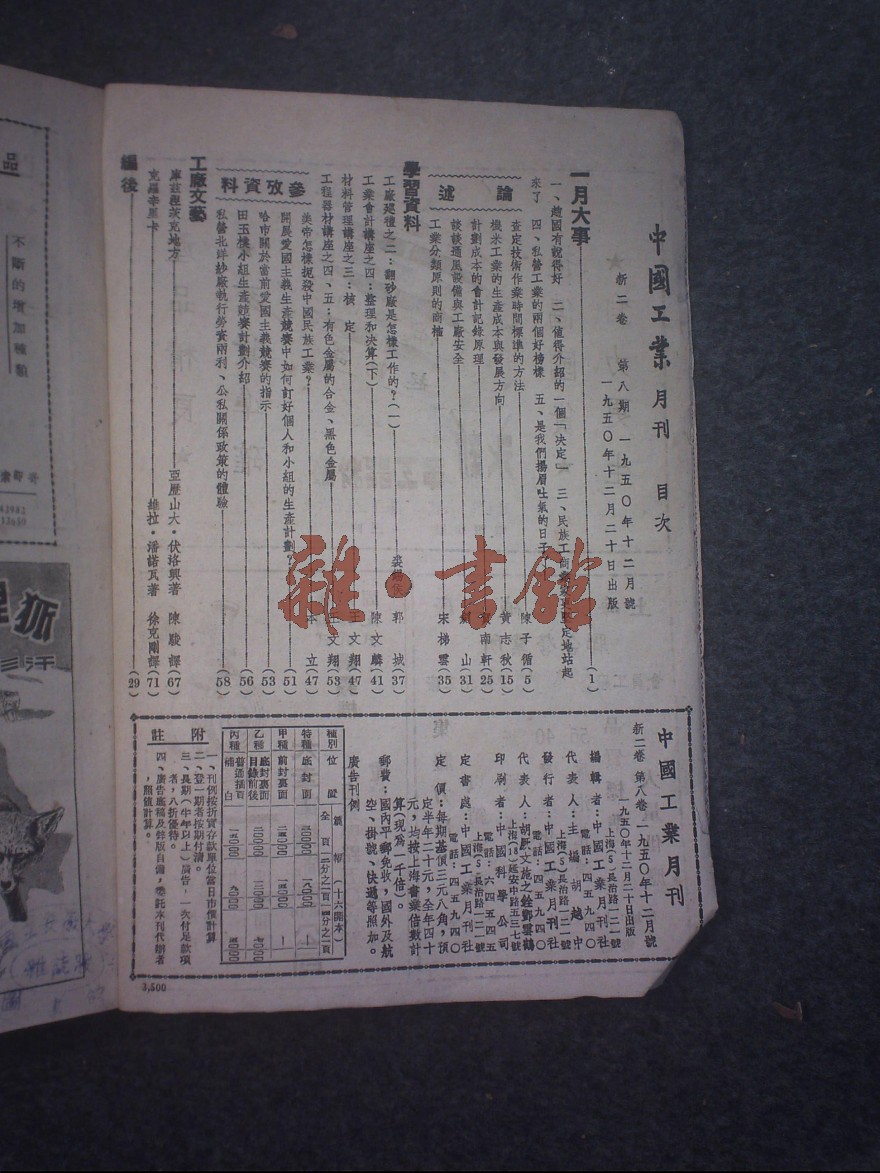 中國工業月刊 目次
新二卷 第八期 一九五〇年十二月號
一九五〇年十二月二十日出版
一月大事 (1)
一、趙國有說得好 二、值得介紹的一個「決定」 三、民族工商 堅定地站起
來了 四、私營工業的兩個好榜樣 五、是我們揚眉吐氣的日子
論述
查定技術作業時間標準的方法 陳子偹(5)
機米工業的生產成本與發展方向 黃志秋(15)
計劃成本的會計記錄原理 南軒(25)
談談通風設備與工廠安全 山(31)
工業分類原則的商榷 宋梯雲(35)
學習資料
工廠巡禮之二:翻砂廠是怎樣工作的?(一) 裘錫侯 郭城(37)
工業會計講座之四:整理和決算(下) 陳文麟(41)
材料管理講座之三:核定 王文翔(47)
工程器材講座之四、五:有色金屬的合金、黑色金屬 王文翔(53)
參攷資料
美帝怎樣扼殺中國民族工業? 本立(47)
開展愛國主義生產競賽中如何訂好個人和小組的生產計劃? (51)
哈市關於當前愛國主義競賽的指示 (53)
田玉樸小組生產競賽計劃介紹 (56)
私營北洋紗廠執行勞資兩利、公私關係政策的體驗 (58)
工廠文藝
庫茲涅茨克地方 亞歷山大·伏洛興著 陳駿譯(67)
克羅辛里卡 維拉·潘諾瓦著 徐克剛譯(71)
編後 (29)
中國工業月刊
新二卷 第八卷 一九五〇年十二月號
一九五〇年十二月二十日出版
編輯者:中國工業月刊社
上海(5)長治路一二一號
電話:四五九四〇
代表人:主編 胡越中
發行者:中國工業月刊社
上海(5)長治路一二一號
電話:四五九四〇
代表人:胡厥文 施之銓 鄭雲鶴
印刷者:中國科學公司
上海(18)延安中路五三七號
電話:六四五四五
定書處:中國工業月刊社
上海(5)長治路一二一號
電話:四五九四〇
定價:每期基價三元八角,預
定半年二十元,全年四十
元,均按上海書業倍數計
算(現爲一千倍)。
郵費:國內平郵免收,國外及航
空、掛號、快遞等照加。
廣告刊例
種別 位置 篇幅(十六開本)
全頁 二分之一頁 四分之一頁
特種 底封面
甲種 前封裏面
乙種 底封裏面 目錄前後
丙種 普通插頁 補白
附註
一、刊例按折實存款單位當日市價計算
二、登一期者按期付清。
三、長期(半年以上)廣告,一次付足款項
者,八折優待。
四、廣告底稿及鋅版自備,委託本刊代辦者
,照值計算。
3,500
雜·書館
品
不斷的增加種類
狐狸